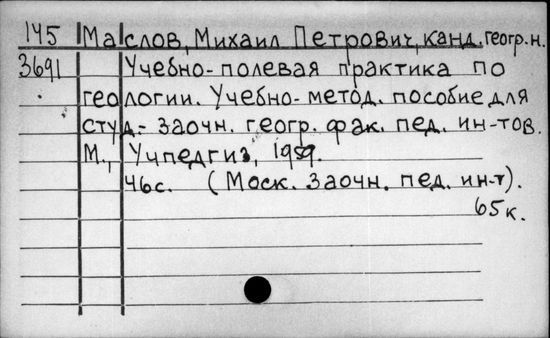 145 Маслов, Михаил Петрович, канд. геогр. н.
3691 Учебно-полевая практика по
геологии. Учебно-метод. пособие для
студ.- заочн. геогр. фак. пед. ин-тов.
М., Учпедгиз, 1959.
46с. (Моск. заочн. пед. ин-т).
65к.